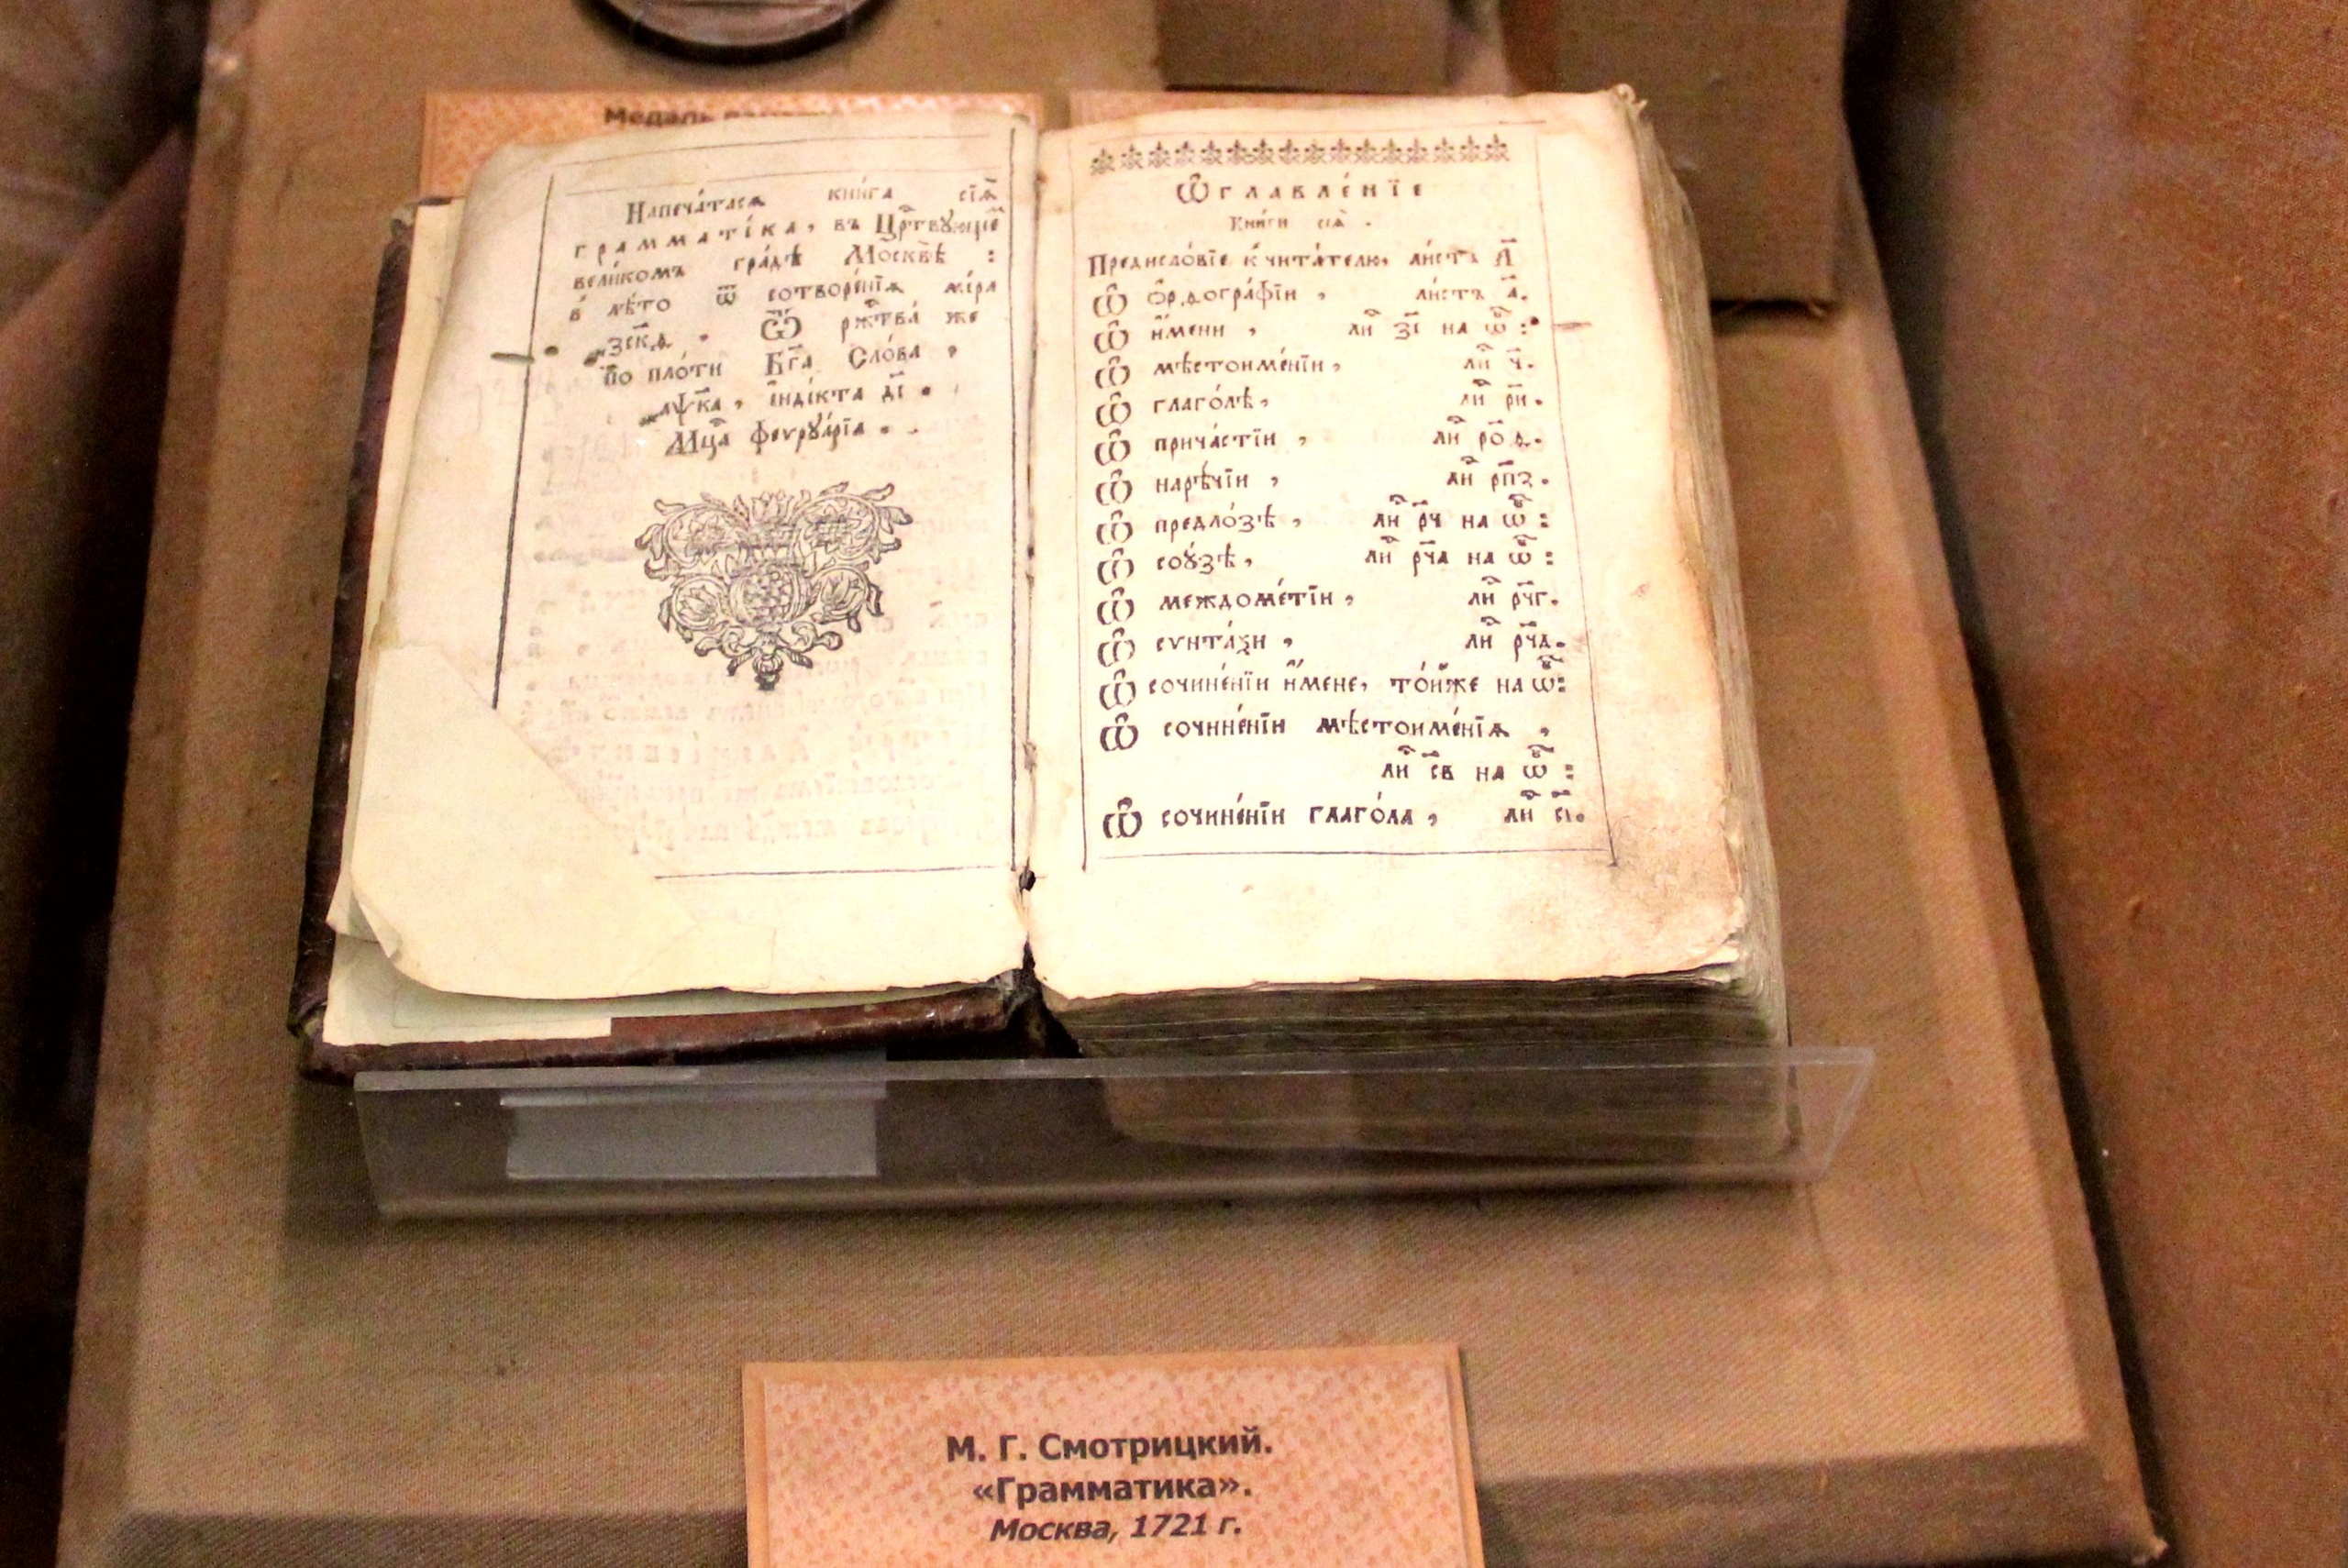 Медаль
Напеча́тася кни́га сїѧ̀
грамматі́ка, въ Црⷭ҇твующеⷨ
вели́комъ гра́дѣ Москвѣ̀ :
в̾ лѣ́то ѿ сотворе́нїѧ мі́ра
҂зс҃кѳ . Ѿ ржⷭ҇тва́ же
по пло́ти Бг҃а Сло́ва ,
҂аѱ҃ка , їнді́кта д҃і .
Мцⷭ҇а феѵрꙋа́рїа .
Ѡ҆главле́нїе
Кни́ги сеѧ̀ .
Предисло́вїе к̾ чита́телю, ли́стъ а҃
Ѽ ѻ҆рѳогра́фїи , ли́стъ а҃.
Ѽ и҆́мени , лиⷭ҇ з҃і на ѡ҆бⷪ҇ :
Ѽ мѣстоиме́нїи, лиⷭ҇ ч҃.
Ѽ глаго́лѣ, лиⷭ҇ рн҃.
Ѽ прича́стїи , лиⷭ҇ ро҃д.
Ѽ нарѣ́чїи , лиⷭ҇ рп҃з.
Ѽ предло́зѣ , лиⷭ҇ рч҃ на ѡ҆бⷪ҇ :
Ѽ сою́зѣ , лиⷭ҇ рч҃а на ѡ҆бⷪ҇ :
Ѽ междоме́тїи , лиⷭ҇ рч҃г.
Ѽ сѵнта́ѯи , лиⷭ҇ рч҃д.
Ѽ сочине́нїи и҆́мене, то́йже на ѡ҆бⷪ҇:
Ѽ сочине́нїи мѣстоиме́нїѧ ,
лиⷭ҇ с҃в на ѡ҆бⷪ҇ :
Ѽ сочине́нїи глаго́ла , лиⷭ҇
М. Г. Смотрицкий.
«Грамматика».
Москва, 1721 г.